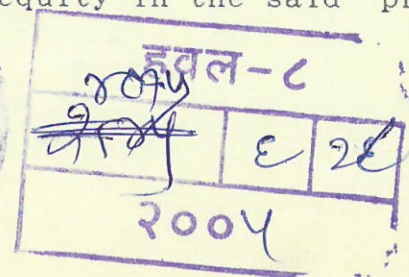 equity in the said pr
हवल-८
६ २६
२००५